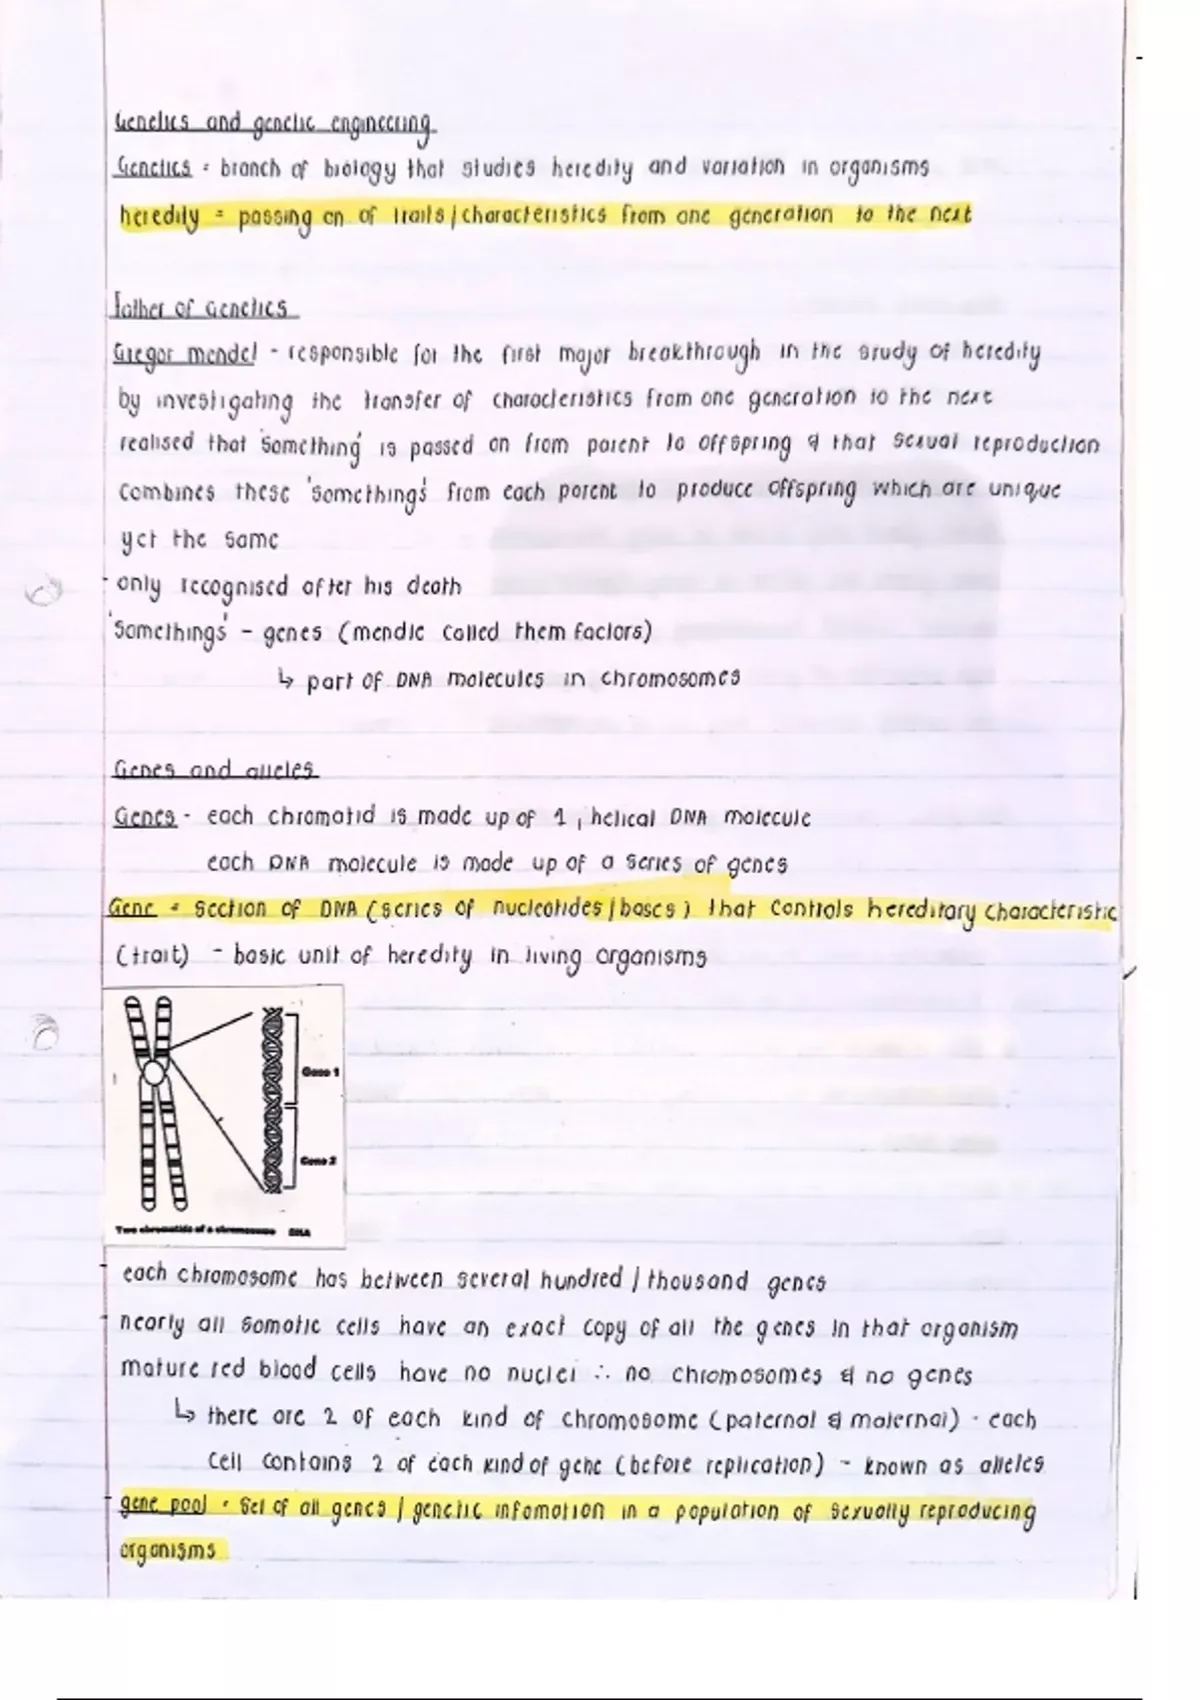 Genetics and genetic engineering
Genetics = branch of biology that studies heredity and variation in organisms
heredity = passing on of traits/characteristics from one generation to the next
Father of Genetics
Gregor mendel - responsible for the first major breakthrough in the study of heredity
by investigating the transfer of characteristics from one generation to the next
realised that 'something' is passed on from parent to offspring & that sexual reproduction
combines these 'somethings' from each parent to produce offspring which are unique
yet the same
- only recognised after his death
'Somethings' - genes (mendle called them factors)
↳ part of DNA molecules in chromosomes
Genes and alleles
Genes - each chromatid is made up of 1, helical DNA molecule
each DNA molecule is made up of a series of genes
Gene = section of DNA (series of nucleotides/bases) that controls hereditary characteristic
(trait) - basic unit of heredity in living organisms
Gene 1
Gene 2
Two chromatids of a chromosome DNA
- each chromosome has between several hundred / thousand genes
- nearly all somatic cells have an exact copy of all the genes in that organism
mature red blood cells have no nuclei ∴ no chromosomes & no genes
↳ there are 2 of each kind of chromosome (paternal & maternal) - each
cell contains 2 of each kind of gene (before replication) - known as alleles
- gene pool = set of all genes / genetic infomation in a population of sexually reproducing
organisms